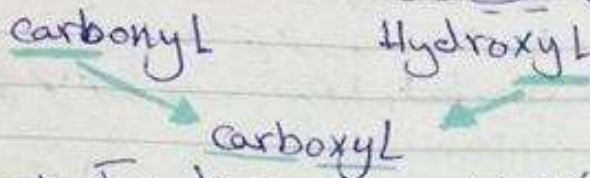 carbonyl Hydroxyl
carboxyl